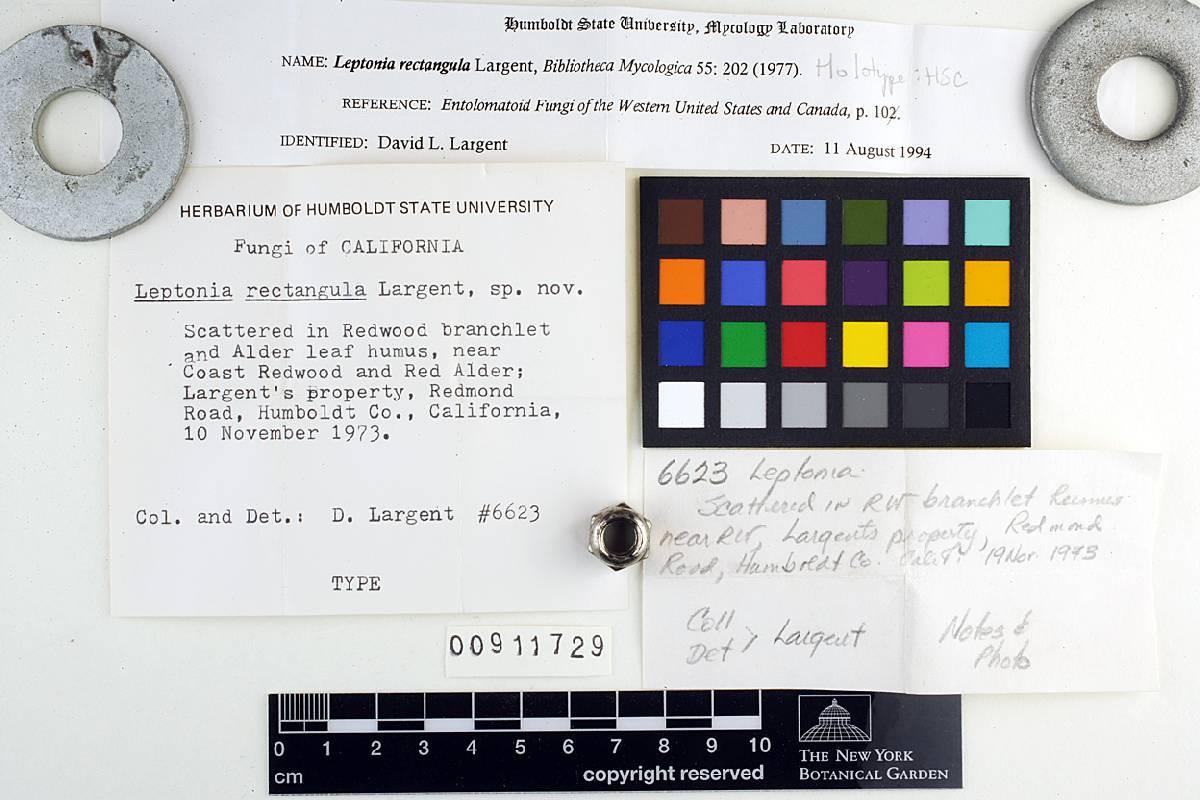 Humboldt State University, Mycology Laboratory
NAME: Leptonia rectangula Largent, Bibliotheca Mycologica 55: 202 (1977). Holotype: HSC
REFERENCE: Entolomatoid Fungi of the Western United States and Canada, p. 102.
IDENTIFIED: David L. Largent
DATE: 11 August 1994
HERBARIUM OF HUMBOLDT STATE UNIVERSITY
Fungi of CALIFORNIA
Leptonia rectangula Largent, sp. nov.
Scattered in Redwood branchlet
and Alder leaf humus, near
Coast Redwood and Red Alder;
Largent's property, Redmond
Road, Humboldt Co., California,
10 November 1973.
Col. and Det.: D. Largent #6623
TYPE
6623 Leptonia
Scattered in RW branchlet
near RW, Largents property, Redmond
Road, Humboldt Co. Calif. 19 Nov. 1973
Coll
Det } Largent
Notes &
Photo
00911729
0 1 2 3 4 5 6 7 8 9 10
cm
copyright reserved
THE NEW YORK
BOTANICAL GARDEN